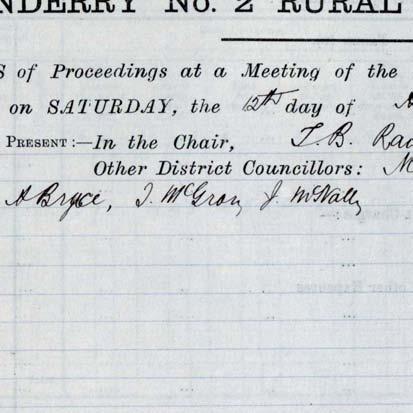 NDERRY No. 2 RURAL
S of Proceedings at a Meeting of the
on SATURDAY, the 12th day of A
PRESENT:—In the Chair, T. B. Rad
Other District Councillors: M
A Bryce, J. McGrory J. McNally